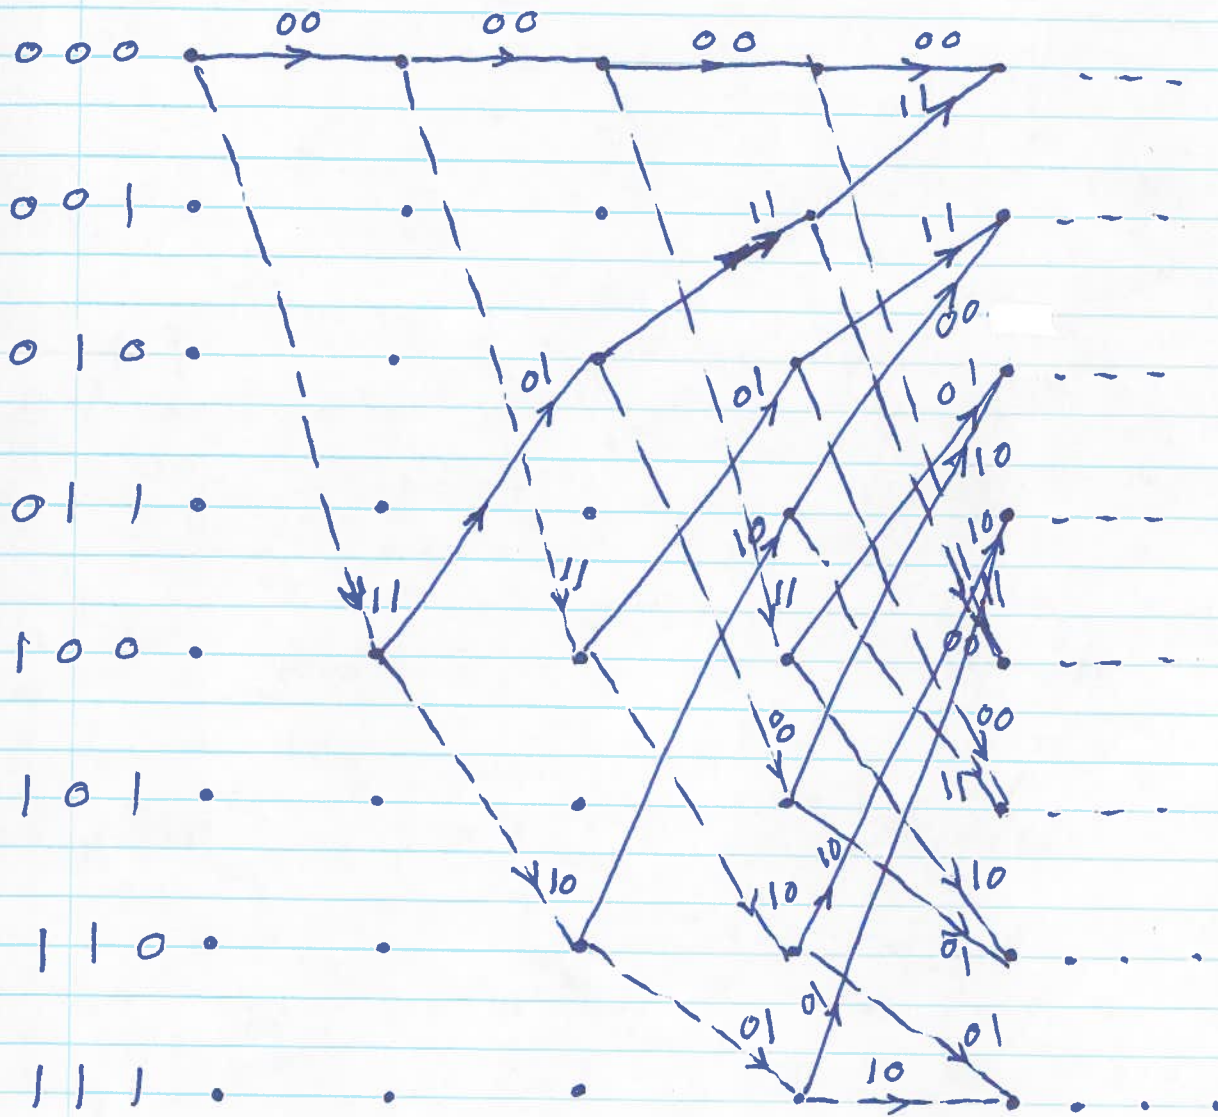 00 00 00 00
000
11
001
11 11
00
010
01 01 01
10
011
10 10
11 11 11 11
100
00
00 00
101
11
10
10 10 10
110
01
01 01 01
111
10